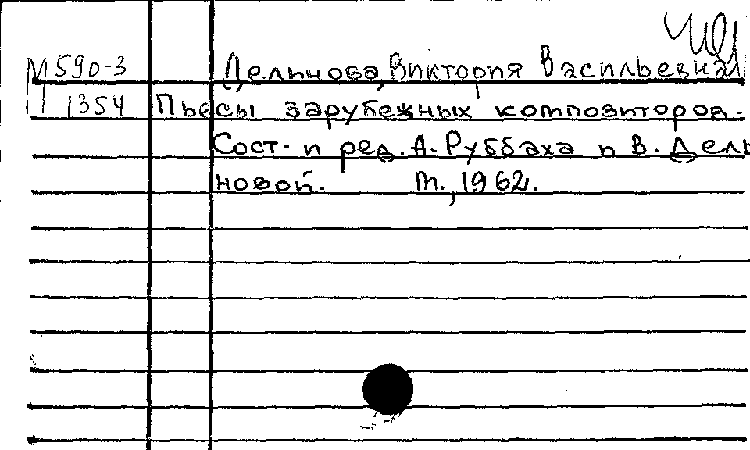 М 590-3 Дельнова, Виктория Васильевна
1354 Пьесы зарубежных композиторов.
Сост. и ред. А. Руббаха и В. Дель
новой. М., 1962.